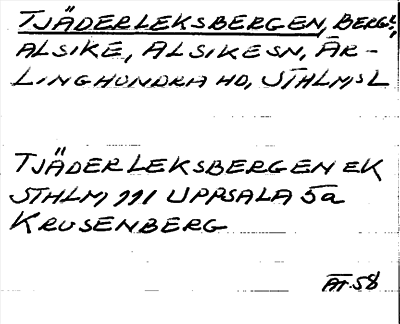 TJÄDERLEKSBERGEN, BERGL.,
ALSIKE, ALSIKE SN, ÄR-
LINGHUNDRA HD, STHLMS L
TJÄDERLEKSBERGEN EK
STHLM 111 UPPSALA 5a
KRUSENBERG
ÄT. 58